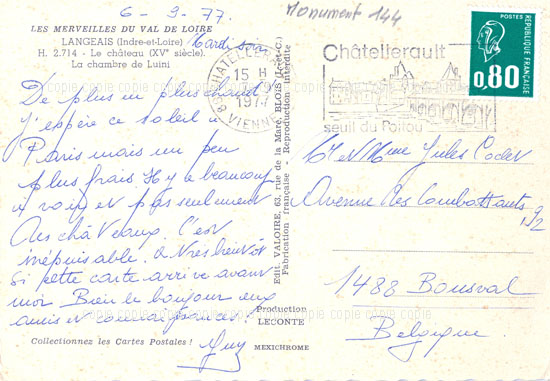 6-9-77
Monument 144
LES MERVEILLES DU VAL DE LOIRE
LANGEAIS (Indre-et-Loire) Mardi soir
H. 2.714 - Le château (XVe siècle).
La chambre de Luini
De plus en plus chaud
J'espère ce soleil à
Paris mais un peu
plus frais. Il y a beaucoup
à voir et pas seulement
des châteaux. C'est
inépuisable. A très bientôt
si cette carte arrive avant
moi Bien le bonjour aux
amis et connaissances!
Guy
Collectionnez les Cartes Postales !
Edit. VALOIRE, 63, rue de la Mare, BLOIS (L.-et-C.)
Fabrication française - Reproduction interdite
Production
LECONTE
MEXICHROME
15 H
1977
VIENNE
Châtellerault
seuil du Poitou
POSTES
RÉPUBLIQUE FRANÇAISE
0,80
M et Mme Jules
Avenue des Combattants
92
1488 Bousval
Belgique
copie copie copie copie copie copie